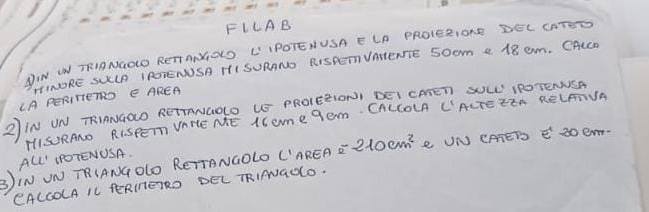 FILAB
1) IN UN TRIANGOLO RETTANGOLO L'IPOTENUSA E LA PROIEZIONE DEL CATETO
MINORE SULLA IPOTENUSA MISURANO RISPETTIVAMENTE 50cm e 18 cm. CALCO
LA PERIMETRO E AREA
2) IN UN TRIANGOLO RETTANGOLO LE PROIEZIONI DEI CATETI SULL'IPOTENUSA
MISURANO RISPETTIVAMENTE 16cm e 9cm. CALCOLA L'ALTEZZA RELATIVA
ALL'IPOTENUSA.
3) IN UN TRIANGOLO RETTANGOLO L'AREA È 210cm² e UN CATETO E' 20 cm.
CALCOLA IL PERIMETRO DEL TRIANGOLO.